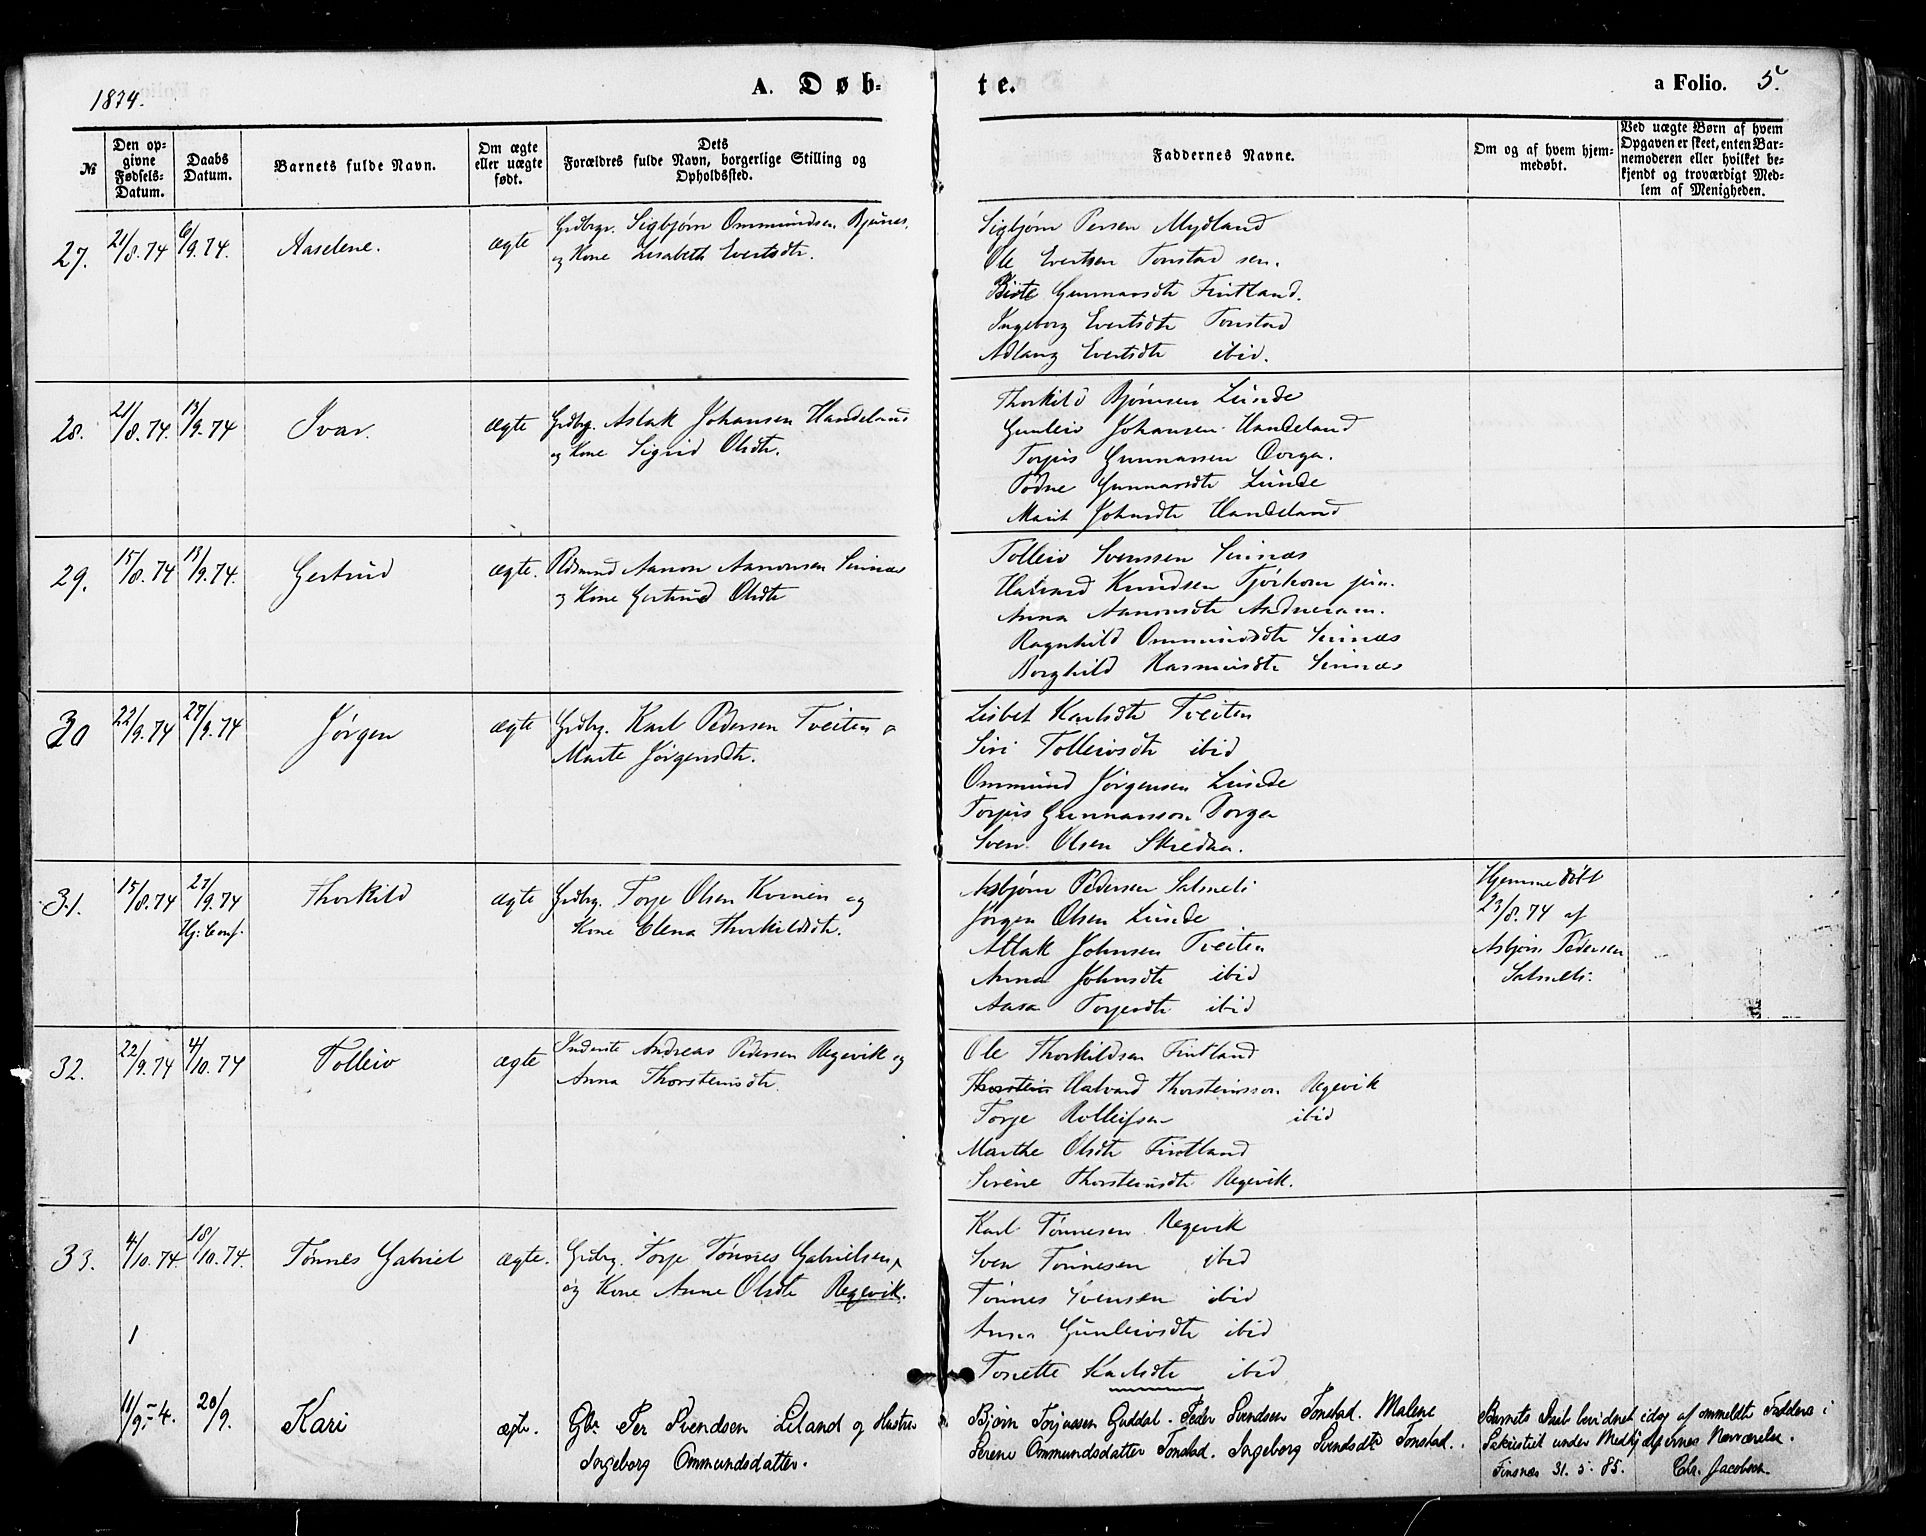 1874. A. Døb- te. a Folio. 5.
№
Den op-
givne
Fødsels-
Datum.
Daabs
Datum.
Barnets fulde Navn.
Om ægte
eller uægte
født.
Dets
Forældres fulde Navn, borgerlige Stilling og
Opholdssted.
Faddernes Navne.
Om og af hvem hjem-
medøbt.
Ved uægte Børn af hvem
Opgaven er skeet, enten Bar-
nemoderen eller hvilket be-
kjendt og troværdigt Med-
lem af Menigheden.
27. 21/8.74 6/9.74. Aaselene. ægte Grdbrgr. Sigbjørn Ommundsen
og Kone Lisabeth Evertsdtr.
Sigbjørn Persen Mydland
Ole Evertsen Tonstad sen.
Birte Gunnarsdtr Fintland.
Ingeborg Evertsdtr Tonstad
Adlaug Evertsdtr ibid.
28. 21/8.74. 13/9.74 Ivar. ægte Grdbrg. Aslak Johansen Handeland
og Kone Sigrid Olsdtr.
Thorkild Bjørnsen Lunde
Gunleiv Johansen Handeland
Torjus Gunnarsen Dorga.
Tødne Gunnarsdtr Lunde
Marit Johnsdtr Handeland
29. 15/8.74 13/9.74. Gertrud ægte. Aanon Aanonsen Sinnæs
og Kone Gertrud Olsdtr
Tolleiv Svenssen Sinnæs
Halvard Knudsen Tjørhom jun.
Anna Aanonsdtr Aadneram.
Ragnhild Ommundsdtr Sinnæs
Borghild Rasmusdtr Sinnæs
30 22/9.74 27/9.74 Jørgen ægte Grdbrg. Karl Pedersen Tveiten o
Marte Jørgensdtr.
Lisbet Karlsdtr Tveiten
Siri Tolleivsdtr ibid
Ommund Jørgensen Lunde
Torjus Gunnarsson Dorga
Sven Olsen Skredaa.
31. 15/8.74 27/9.74 Thorkild ægte Grdbrg. Torje Olsen Kvinen og
Hj: Conf. Kone Elena Thorkildsdtr.
Asbjørn Pedersen Salmeli
Jørgen Olsen Lunde
Atlak Johnsen Tveiten
Anna Johnsdtr ibid
Aasa Torjesdtr ibid
Hjemmedøbt
23/8.74 af
Asbjørn Pedersen
Salmeli.
32. 22/9.74 4/10.74 Tolleiv ægte Inderste Andreas Pedersen Regevik og
Anna Thorsteinsdtr.
Ole Thorkildsen Fintland
Thorstein Halvard Thorsteinsson Regevik
Torje Rolleifsen ibid
Marthe Olsdtr Fintland
Serene Thorsteinsdtr Regevik.
33. 4/10.74. 18/10.74. Tønnes Gabriel ægte. Grdbrg. Torje Tønnes Gabrielsen
og Kone Anne Olsdtr Regevik.
Karl Tønnesen Regevik
Sven Tønnesen ibid
Tønnes Svensen ibid
Anna Gunleivsdtr ibid
Tonette Karlsdtr ibid
1
11/9.-4. 20/9. Kari ægte. Gbr. Per Svendsen Liland og Hustru
Ingeborg Ommundsdatter.
Bjørn Torjussen Guddal. Peder Svendsen Tonstad. Malene
Serene Ommundsdatter Tonstad. Ingeborg Svendsdtr Tonstad.
Barnets Daab bevidnet idag af ommeldte Faddere i
Sakristiet under Medhjælpernes Nærværelse.
Finsnæs 31. 5. 85. Chr. Jacobsen